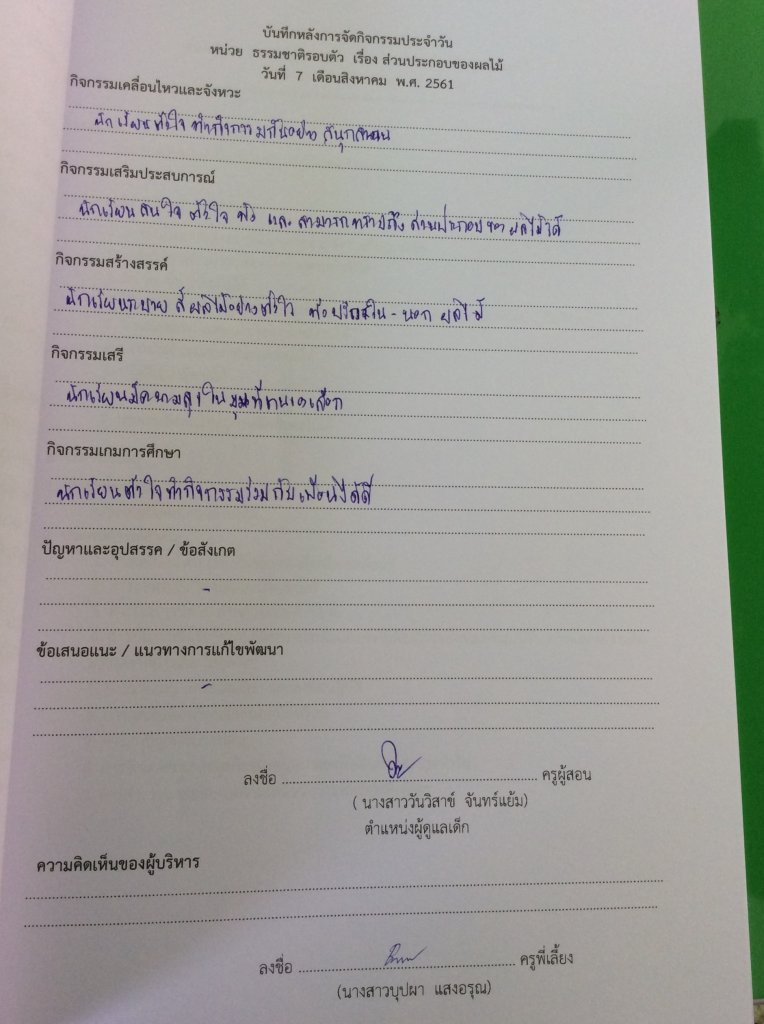 บันทึกหลังการจัดกิจกรรมประจำวัน
หน่วย ธรรมชาติรอบตัว เรื่อง ส่วนประกอบของผลไม้
วันที่ 7 เดือนสิงหาคม พ.ศ. 2561
กิจกรรมเคลื่อนไหวและจังหวะ
นักเรียนตั้งใจ ทำกิจกรรมกันอย่าง สนุกสนาน
กิจกรรมเสริมประสบการณ์
นักเรียนสนใจ ตั้งใจ ฟัง และ สามารถทราบถึง ส่วนประกอบ ของ ผลไม้ได้
กิจกรรมสร้างสรรค์
นักเรียนระบาย สีผลไม้อย่างตั้งใจ ใน - นอก ผลไม้
กิจกรรมเสรี
นักเรียนมีความสุขในมุมที่ตนเองเลือก
กิจกรรมเกมการศึกษา
นักเรียนตั้งใจทำกิจกรรมร่วมกับเพื่อนได้ดี
ปัญหาและอุปสรรค / ข้อสังเกต
-
ข้อเสนอแนะ / แนวทางการแก้ไขพัฒนา
-
ลงชื่อ ครูผู้สอน
( นางสาววันวิสาข์ จันทร์แย้ม)
ตำแหน่งผู้ดูแลเด็ก
ความคิดเห็นของผู้บริหาร
ลงชื่อ ครูพี่เลี้ยง
(นางสาวบุปผา แสงอรุณ)